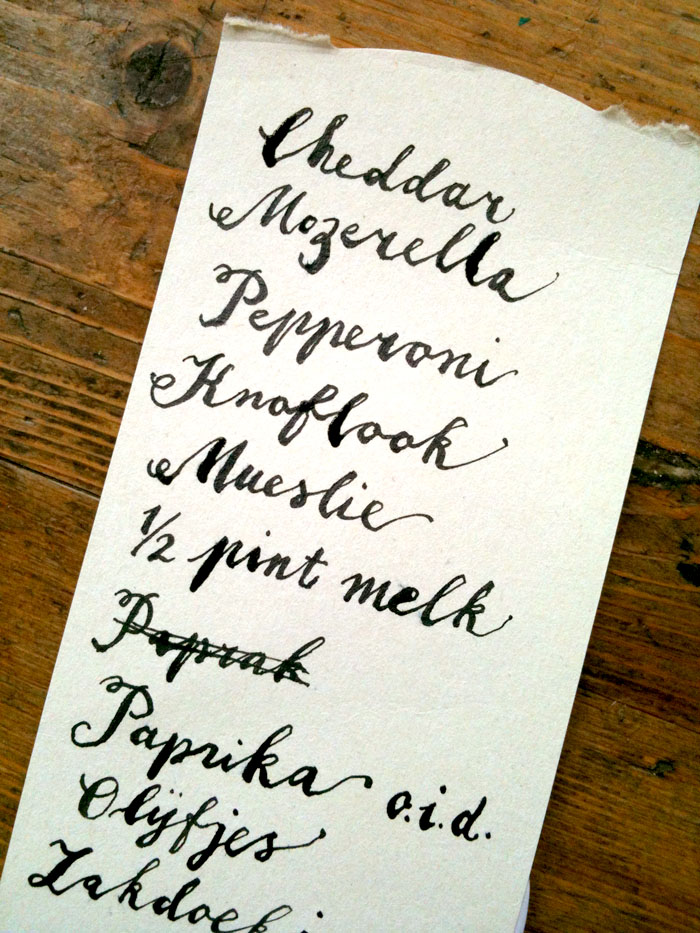 Cheddar
Mozerella
Pepperoni
Knoflook
Mueslie
1/2 pint melk
Paprak
Paprika o.i.d.
Olijfjes